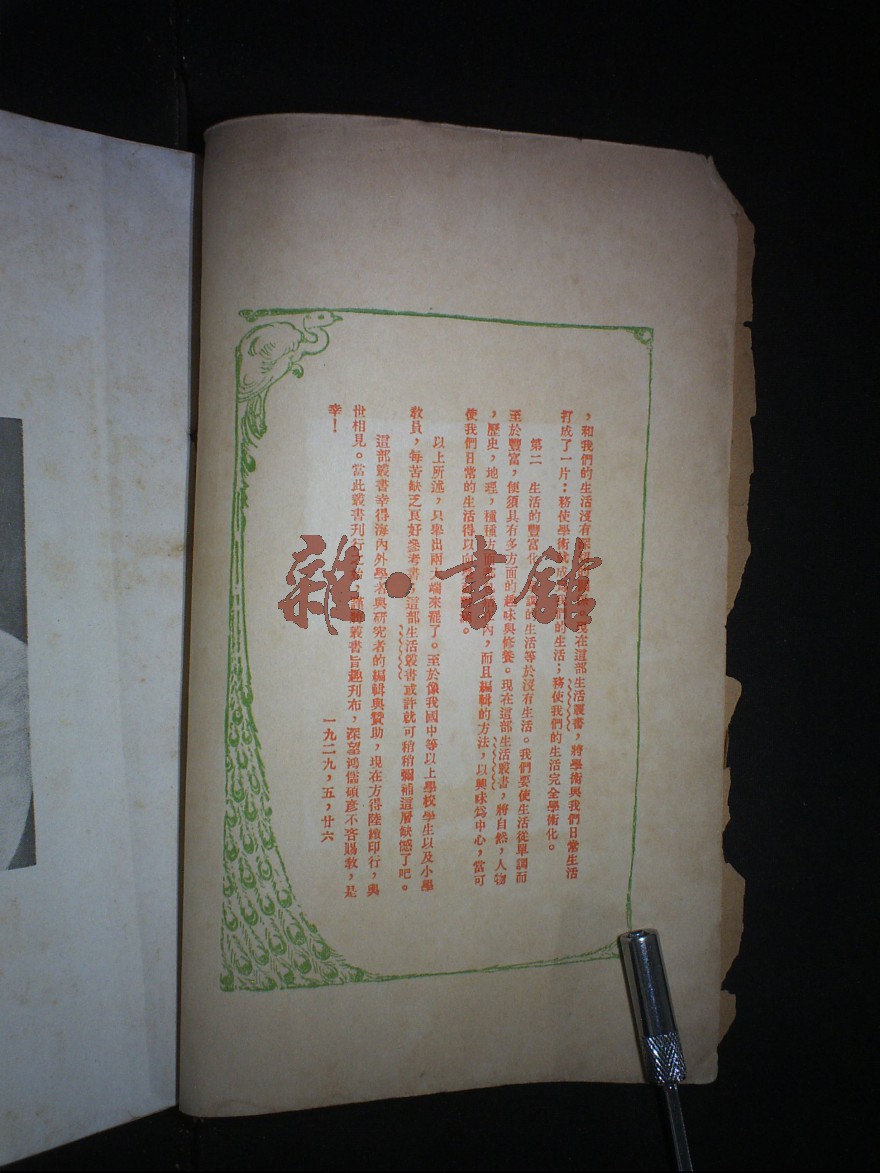 ，和我們的生活沒有在這部生活叢書，將學術與我們日常生活
打成了一片：務使學術就成的生活；務使我們的生活完全學術化。
第二　生活的豐富化的生活等於沒有生活。我們要使生活從單調而
至於豐富，便須具有多方面的趣味與修養。現在這部生活叢書，將自然，人物
，歷史，地理，種種方內，而且編輯的方法，以興味爲中心，當可
使我們日常的生活得以向。
以上所述，只舉出兩大端來罷了。至於像我國中等以上學校學生以及小學
敎員，每苦缺乏良好參考書，這部生活叢書或許就可稍稍彌補這層缺憾了吧。
這部叢書幸得海內外學者與硏究者的編輯與贊助，現在方得陸續印行，與
世相見。當此叢書刊行，叢書旨趣刊布，深望鴻儒碩彥不吝賜敎，是
幸！
一九二九，五，廿六
雜·書館